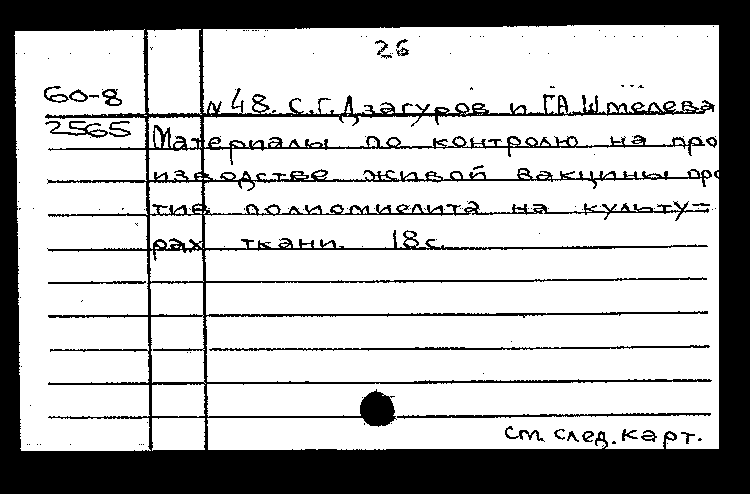 26
60-8
2565
№ 48. С.Г. Дзагуров и Г.А. Шмелева
Материалы по контролю на про
изводстве живой вакцины про
тив полиомиелита на культу=
рах ткани. 18 с.
см. след. карт.